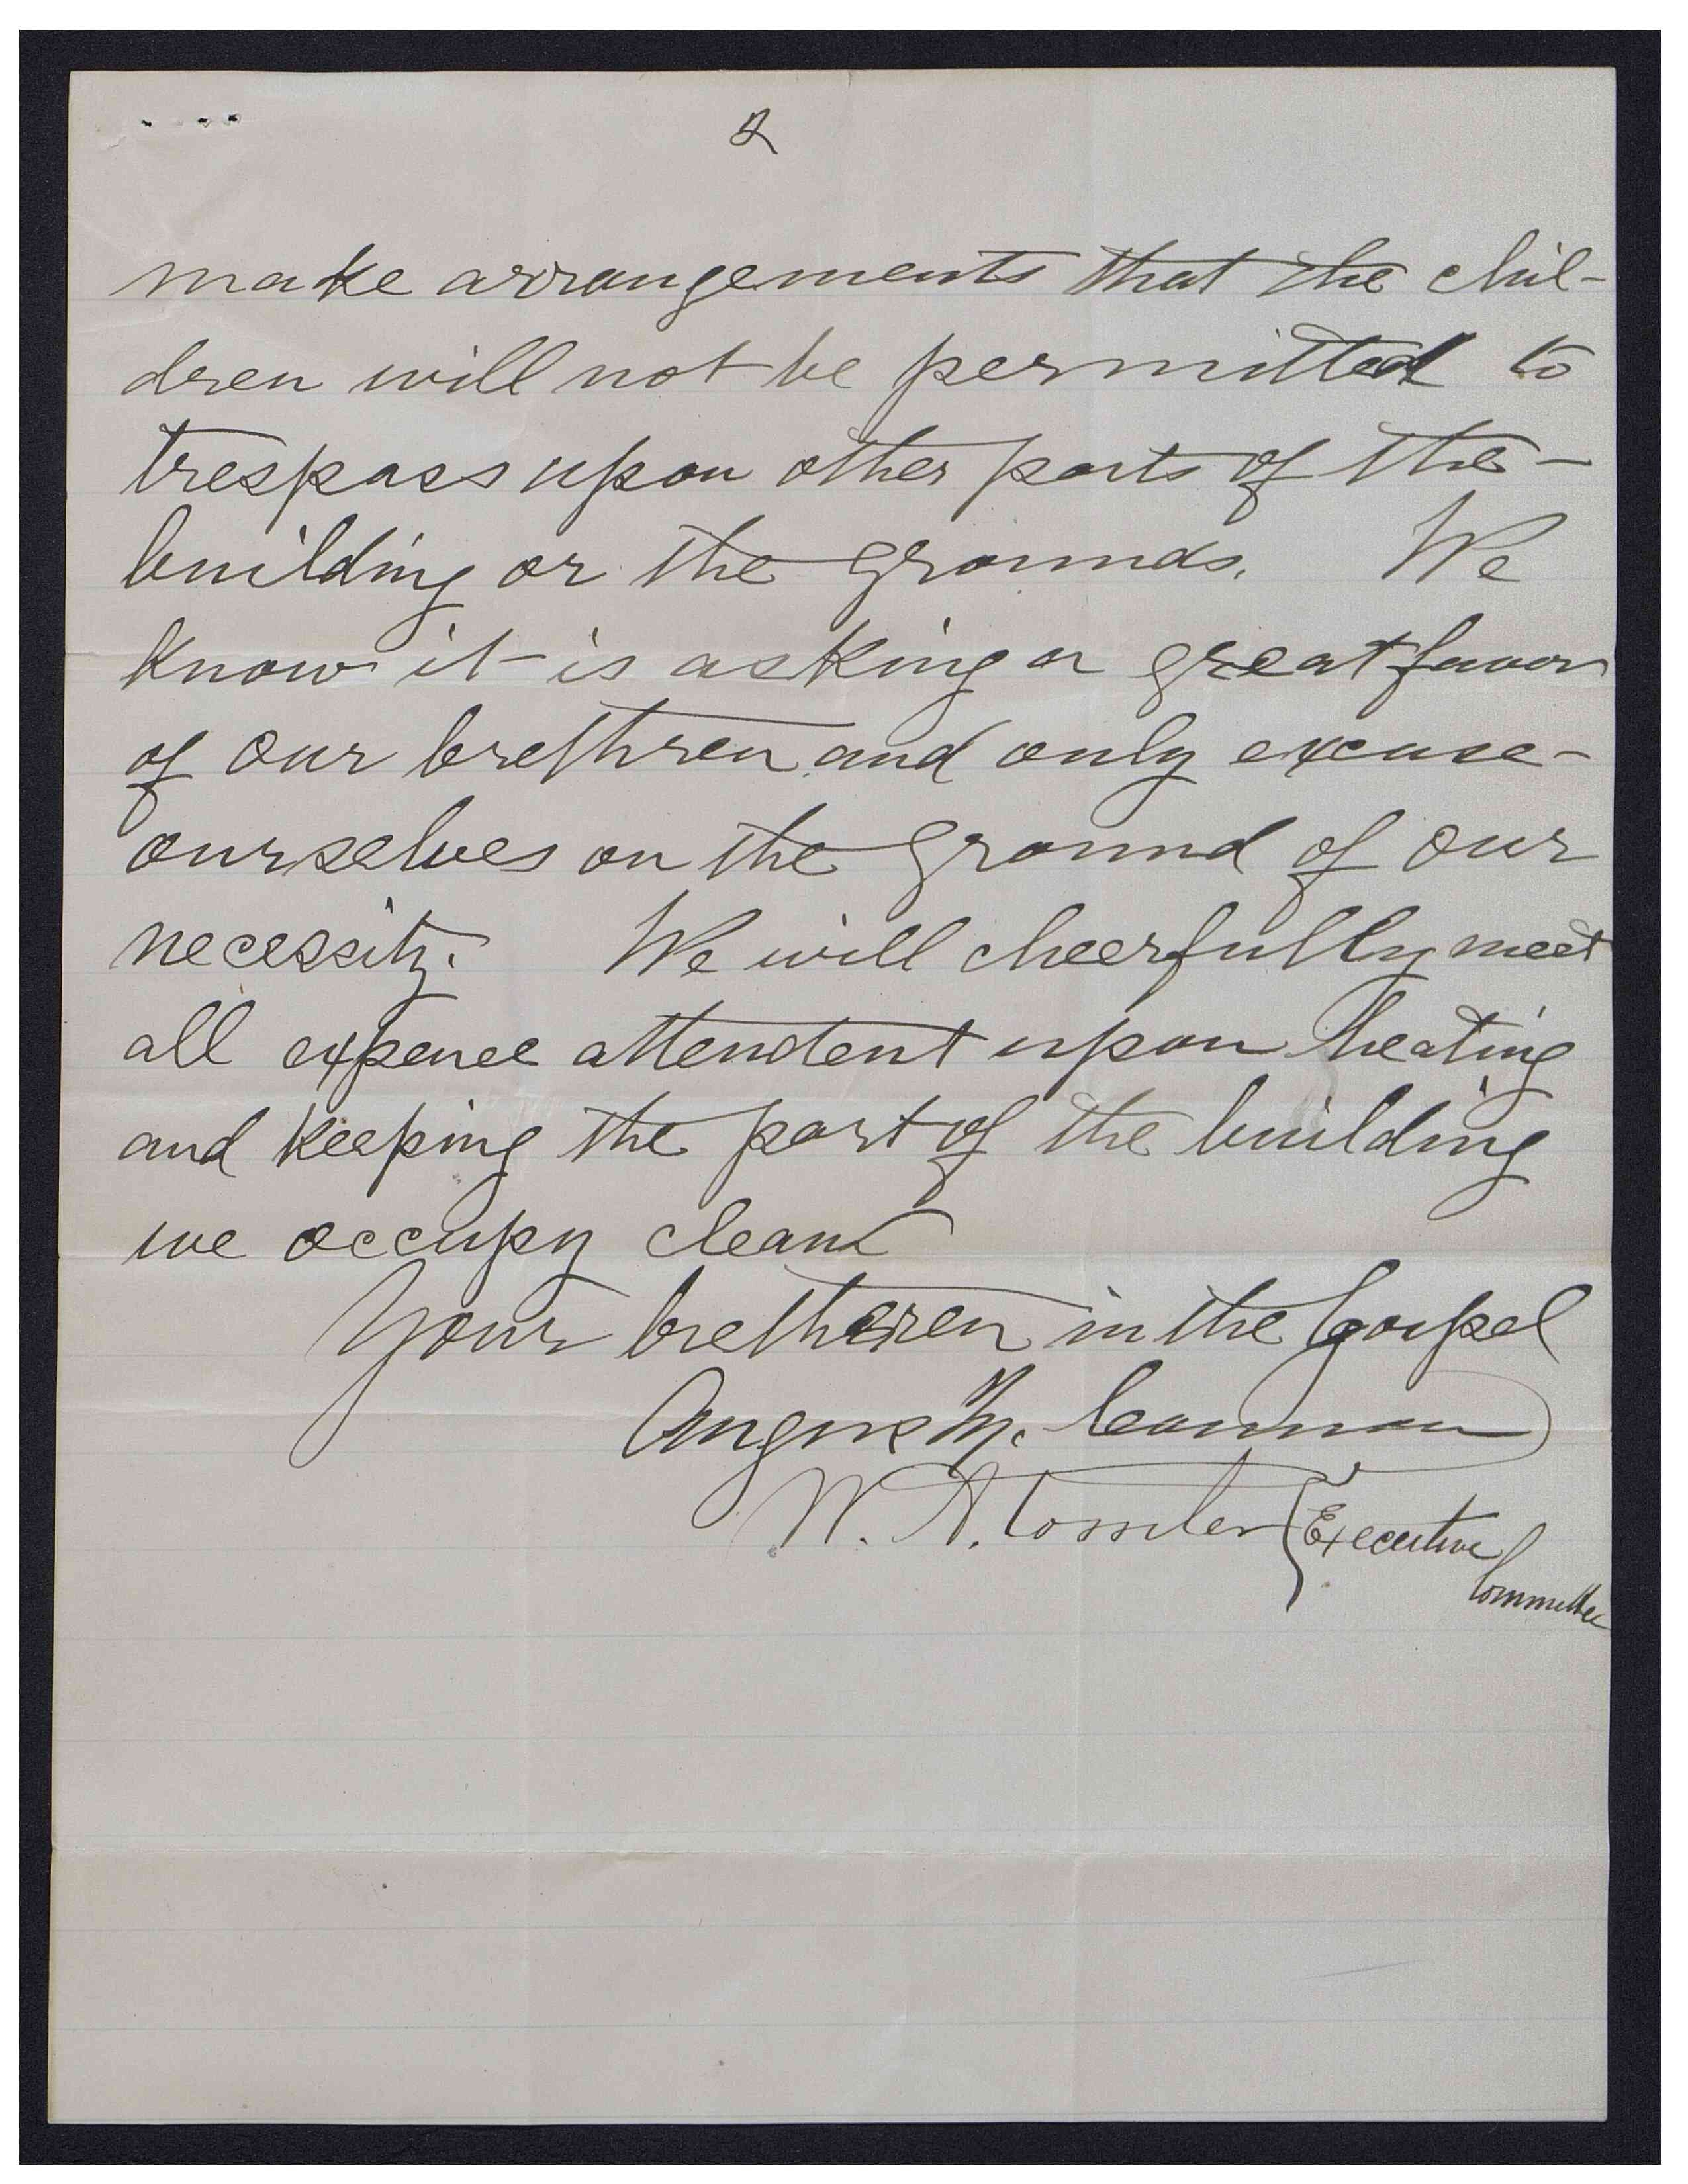 2
make arrangements that the chil-
dren will not be permitted to
trespass upon other parts of the
building or the grounds. We
know it is asking a great favor
of our brethren and only excuse
ourselves on the ground of our
necessity. We will cheerfully meet
all expence attendent upon heating
and keeping the part of the building
we occupy clean
Your bretheren in the Gospel
Angus M. Cannon
W. A. Rossiter } Executive
Committee